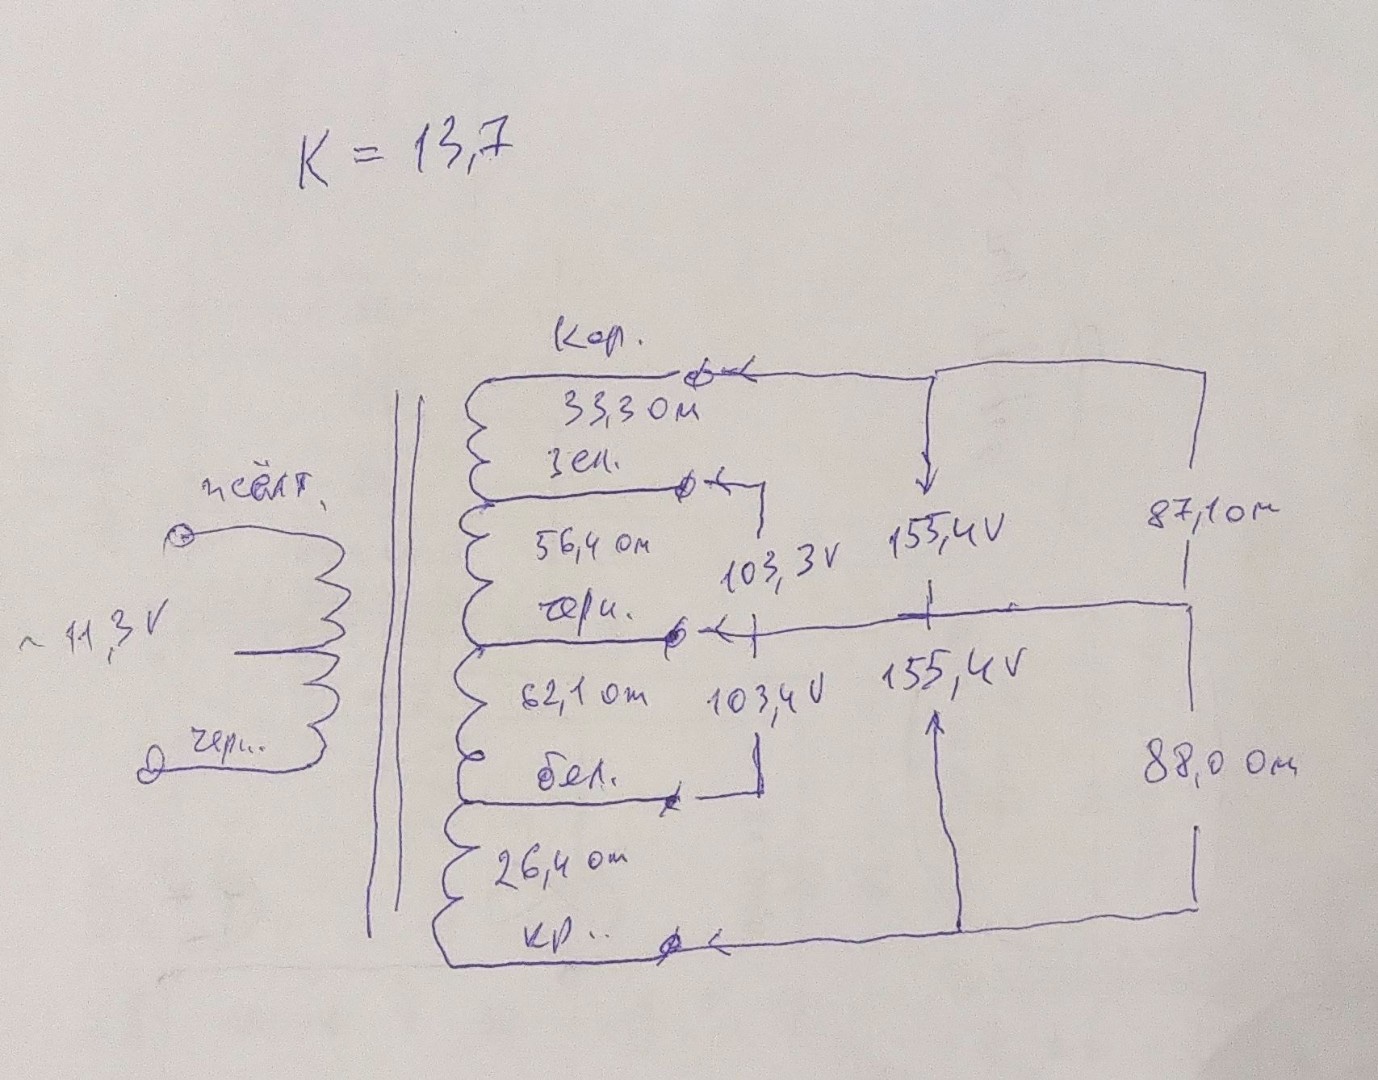 K = 13,7
Кор.
33,3 ом
зел.
жёлт.
87,1 ом
155,4 V
56,4 ом
103,3 V
черн.
~ 11,3 V
155,4 V
62,1 ом
103,4 V
черн.
88,0 Ом
бел.
26,4 ом
кр..